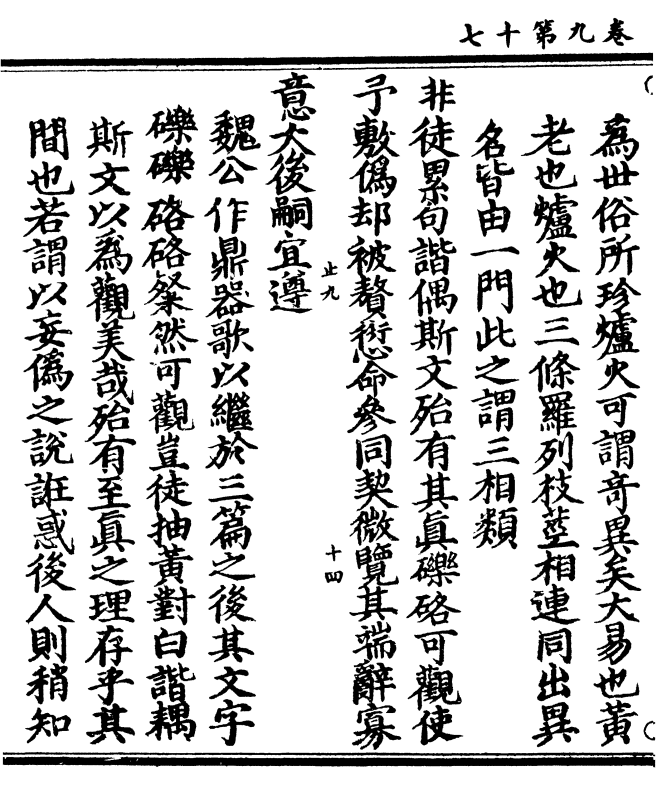 卷九第十七
為世俗所珍爐火可謂竒異矣大易也黃
老也爐火也三條羅列枝莖相連同出異
名皆由一門此之謂三相類
非徒累句諧偶斯文殆有其眞礫硌可觀使
予敷僞却被贅愆命參同契微覽其端辭寡
意大後嗣宜遵
止九
十四
魏公作鼎器歌以繼於三篇之後其文字
礫礫硌硌粲然可觀豈徒抽黃對白諧耦
斯文以爲觀美哉殆有至眞之理存乎其
間也若謂以妄僞之說誑惑後人則稍知